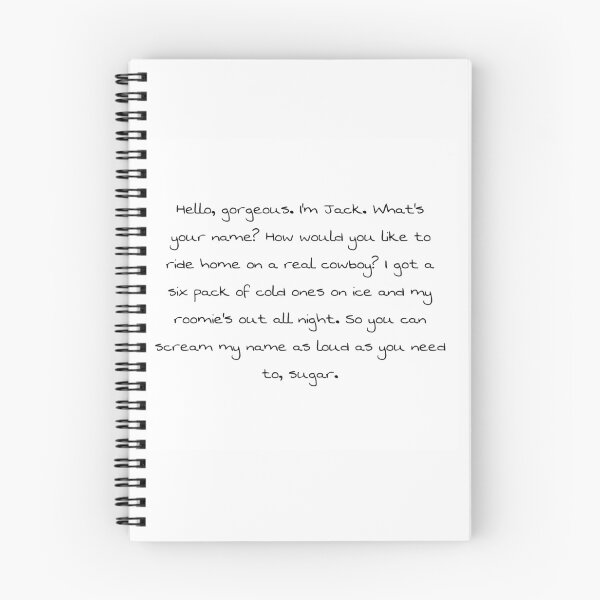 Hello, gorgeous. I'm Jack. What's
your name? How would you like to
ride home on a real cowboy? I got a
six pack of cold ones on ice and my
roomie's out all night. So you can
scream my name as loud as you need
to, sugar.